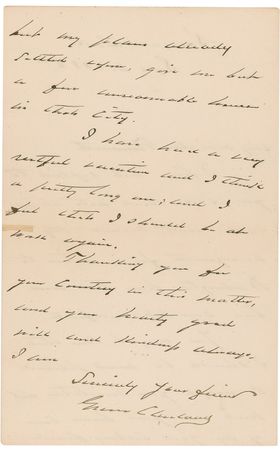 but my plans already
settled upon, give me but
a few unseasonable hours
in that City.
I have had a very
restful vacation and I think
a pretty long one; and I
feel that I should be at
work again.
Thanking you for
your Courtesy in this matter,
and your hearty good
will and kindness always,
I am
Sincerely Your friend
Grover Cleveland